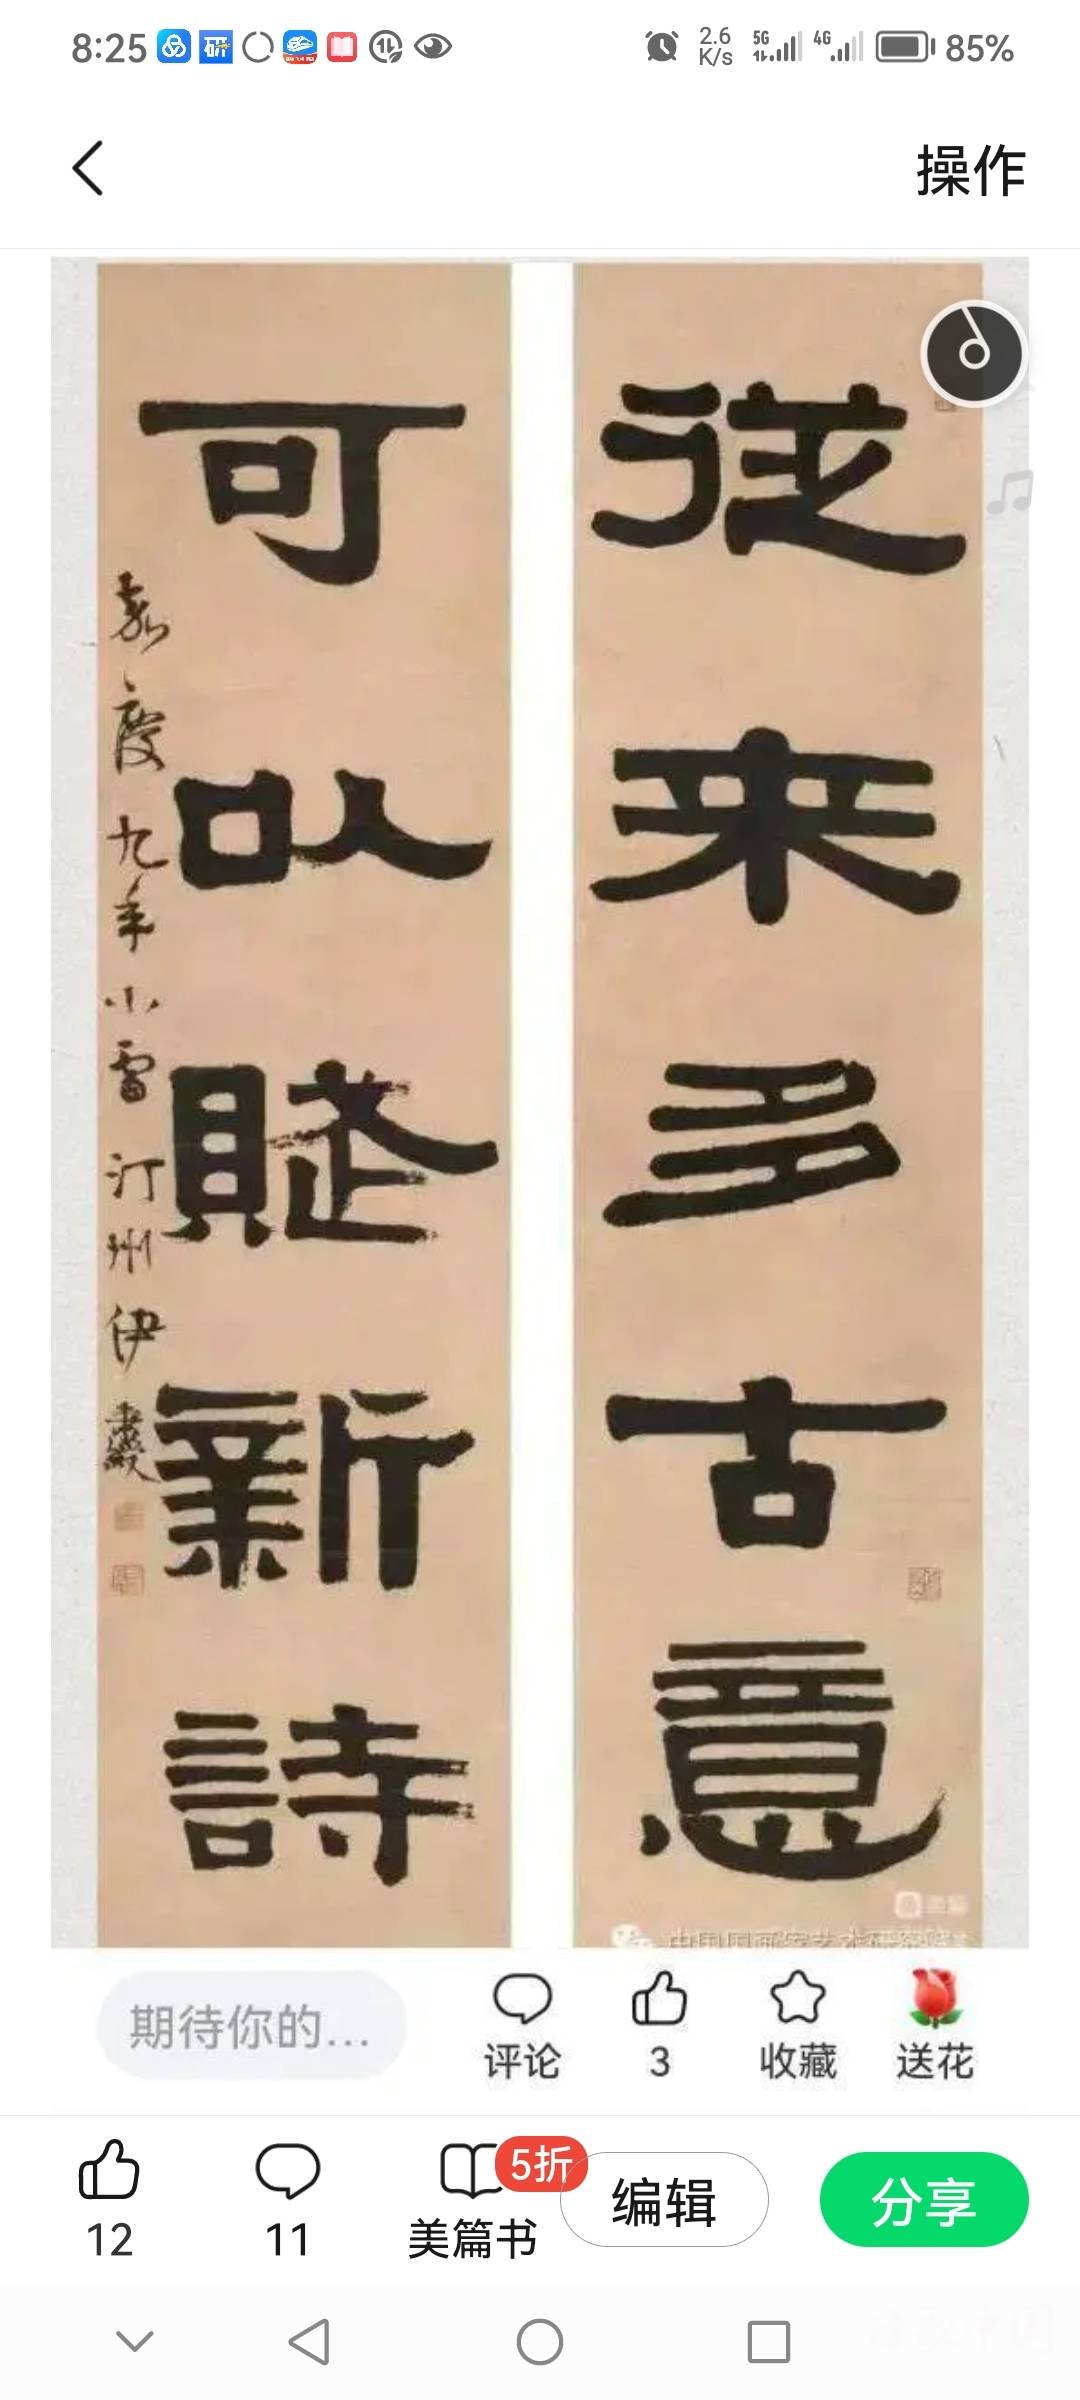 8:25
2.6
K/s
5G
4G
85%
操作
從来多古意
可以賦新詩
嘉慶九年小雪汀州伊秉綬
期待你的...
评论
3
收藏
送花
12
11
美篇书
5折
编辑
分享